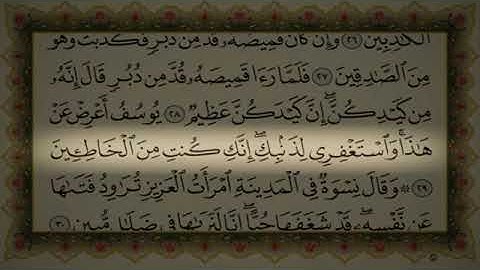 ٱلْكَٰذِبِينَ ٢٦ وَإِن كَانَ قَمِيصُهُۥ قُدَّ مِن دُبُرٍ فَكَذَبَتْ وَهُوَ
مِنَ ٱلصَّٰدِقِينَ ٢٧ فَلَمَّا رَءَا قَمِيصَهُۥ قُدَّ مِن دُبُرٍ قَالَ إِنَّهُۥ
مِن كَيْدِكُنَّ إِنَّ كَيْدَكُنَّ عَظِيمٌ ٢٨ يُوسُفُ أَعْرِضْ عَنْ
هَٰذَا وَٱسْتَغْفِرِى لِذَنۢبِكِ إِنَّكِ كُنتِ مِنَ ٱلْخَاطِـِٔينَ
٢٩ ۞ وَقَالَ نِسْوَةٌ فِى ٱلْمَدِينَةِ ٱمْرَأَتُ ٱلْعَزِيزِ تُرَٰوِدُ فَتَىٰهَا
عَن نَّفْسِهِۦ قَدْ شَغَفَهَا حُبًّا إِنَّا لَنَرَىٰهَا فِى ضَلَٰلٍ مُّبِينٍ ٣٠